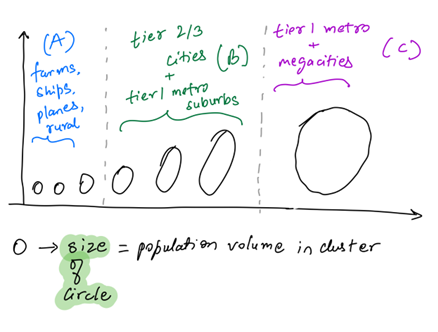 (A)
farms,
ships,
planes,
rural
tier 2/3
cities (B)
+
tier 1 metro
suburbs
tier 1 metro
+
megacities (C)
O → size = population volume in cluster
of
circle